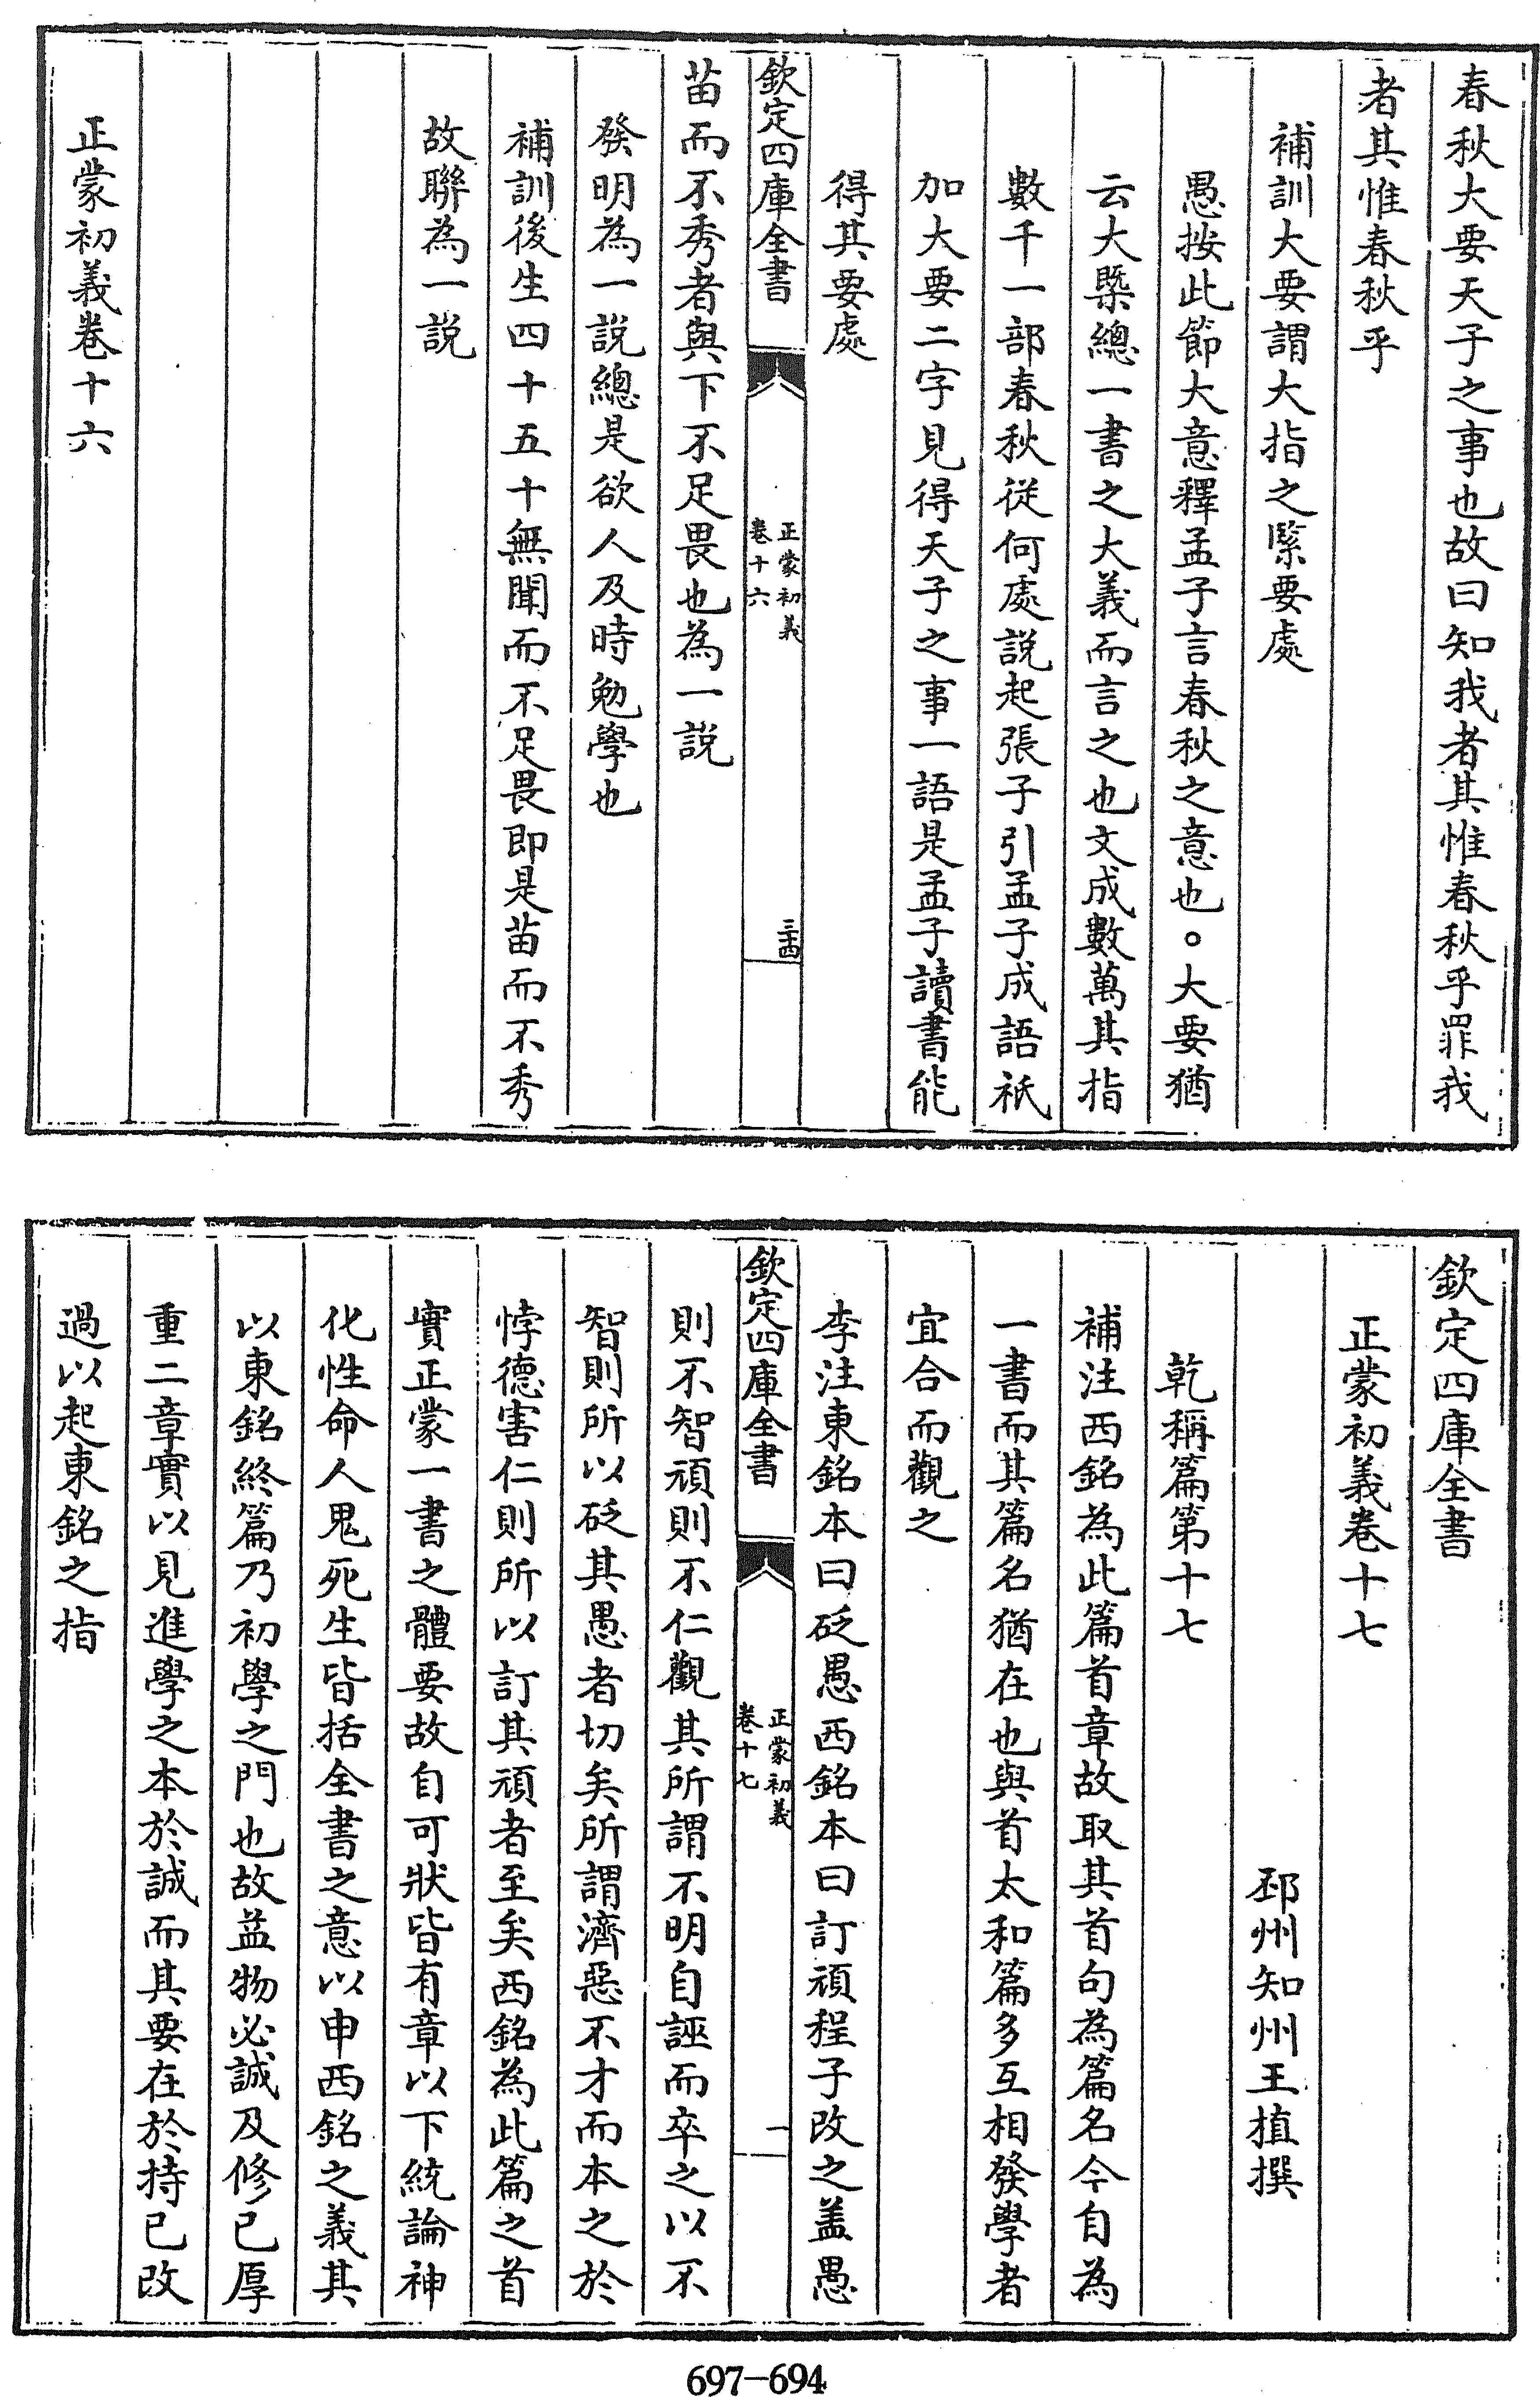 春秋大要天子之事也故曰知我者其惟春秋乎罪我
者其惟春秋乎
補訓大要謂大指之緊要處
愚按此節大意釋孟子言春秋之意也。大要猶
云大槩總一書之大義而言之也文成數萬其指
數千一部春秋從何處説起張子引孟子成語祇
加大要二字見得天子之事一語是孟子讀書能
得其要處
欽定四庫全書
正蒙初義
卷十六
三十四
苗而不秀者與下不足畏也為一説
發明為一説總是欲人及時勉學也
補訓後生四十五十無聞而不足畏即是苗而不秀
故聯為一説
正蒙初義卷十六
欽定四庫全書
正蒙初義卷十七
邳州知州王植撰
乾稱篇第十七
補注西銘為此篇首章故取其首句為篇名今自為
一書而其篇名猶在也與首太和篇多互相發學者
宜合而觀之
李注東銘本曰砭愚西銘本曰訂頑程子改之葢愚
欽定四庫全書
正蒙初義
卷十七
一
則不智頑則不仁觀其所謂不明自誣而卒之以不
智則所以砭其愚者切矣所謂濟惡不才而本之於
悖德害仁則所以訂其頑者至矣西銘為此篇之首
實正蒙一書之體要故自可狀皆有章以下統論神
化性命人鬼死生皆括全書之意以申西銘之義其
以東銘終篇乃初學之門也故益物必誠及修己厚
重二章實以見進學之本於誠而其要在於持已改
過以起東銘之指
697-694